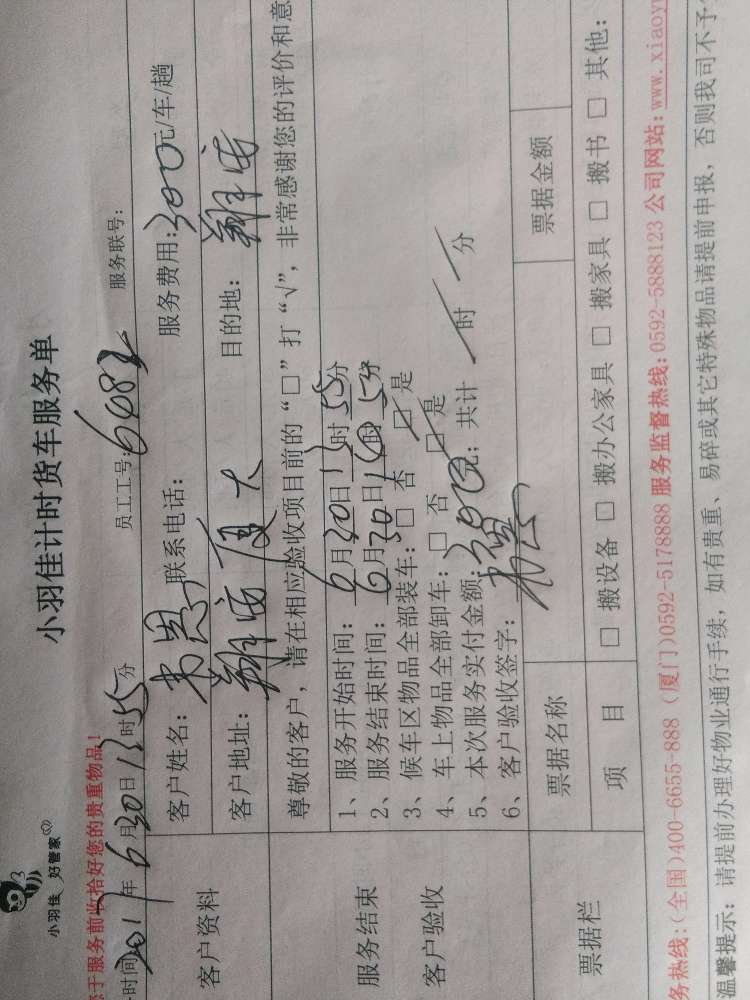 小羽佳 好管家
小羽佳计时货车服务单
您于服务前收拾好您的贵重物品!
时间 2017年6月30日 时55分 员工工号: 服务联号:
客户资料
客户姓名: 联系电话: 服务费用:300元/车/趟
客户地址:翔安厦大 目的地:翔安
尊敬的客户,请在相应验收项目前的“□”打“√”,非常感谢您的评价和意
服务结束
客户验收
1、服务开始时间:6月30日 时55分
2、服务结束时间:6月30日 时5分
3、候车区物品全部装车:□否 □是
4、车上物品全部卸车:□否 □是
5、本次服务实付金额:300元;共计 时 分
6、客户验收签字:
票据栏
票据名称 票据金额
项 目 □搬设备 □搬办公家具 □搬家具 □搬书 □其他:
务热线:(全国)400-6655-888 (厦门)0592-5178888 服务监督热线:0592-5888123 公司网站:www.xiaoyu
温馨提示:请提前办理好物业通行手续,如有贵重、易碎或其它特殊物品请提前申报,否则我司不予